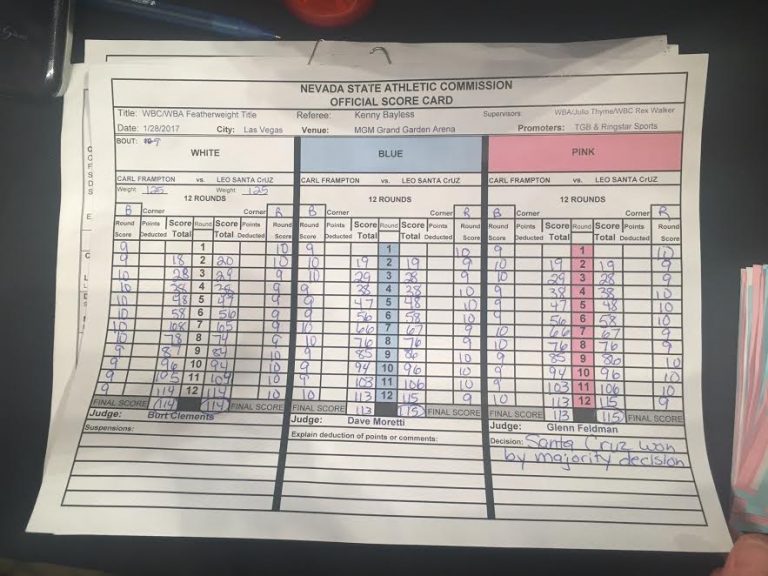 NEVADA STATE ATHLETIC COMMISSION
OFFICIAL SCORE CARD
Title: WBC/WBA Featherweight Title Referee: Kenny Bayless Supervisors: WBA/Julio Thyme/WBC Rex Walker
Date: 1/28/2017 City: Las Vegas Venue: MGM Grand Garden Arena Promoters: TGB & Ringstar Sports
BOUT: 9
WHITE BLUE PINK
CARL FRAMPTON vs. LEO SANTA CRUZ CARL FRAMPTON vs. LEO SANTA CRUZ CARL FRAMPTON vs. LEO SANTA CRUZ
Weight 125 Weight 125
12 ROUNDS 12 ROUNDS 12 ROUNDS
B Corner Corner R B Corner Corner R B Corner Corner R
Round Points Score Round Score Points Round Round Points Score Round Score Points Round Round Points Score Round Score Points Round
Score Deducted Total Total Deducted Score Score Deducted Total Total Deducted Score Score Deducted Total Total Deducted Score
9 1 10 9 1 10 9 1 10
9 18 2 20 10 10 19 2 19 9 10 19 2 19 9
10 28 3 29 9 10 29 3 28 9 10 29 3 28 9
10 38 4 38 9 9 38 4 38 10 9 38 4 38 10
10 48 5 47 9 9 47 5 48 10 9 47 5 48 10
10 58 6 56 9 9 56 6 58 10 9 56 6 58 10
10 68 7 65 9 10 66 7 67 9 10 66 7 67 9
10 78 8 74 9 10 76 8 76 9 10 76 8 76 9
9 87 9 84 10 9 85 9 86 10 9 85 9 86 10
9 96 10 94 10 9 94 10 96 10 9 94 10 96 10
9 105 11 104 10 9 103 11 106 10 9 103 11 106 10
9 114 12 114 10 10 113 12 115 9 10 113 12 115 9
FINAL SCORE 114 114 FINAL SCORE FINAL SCORE 113 115 FINAL SCORE FINAL SCORE 113 115 FINAL SCORE
Judge: Burt Clements Judge: Dave Moretti Judge: Glenn Feldman
Suspensions: Explain deduction of points or comments: Decision: Santa Cruz won
by majority decision